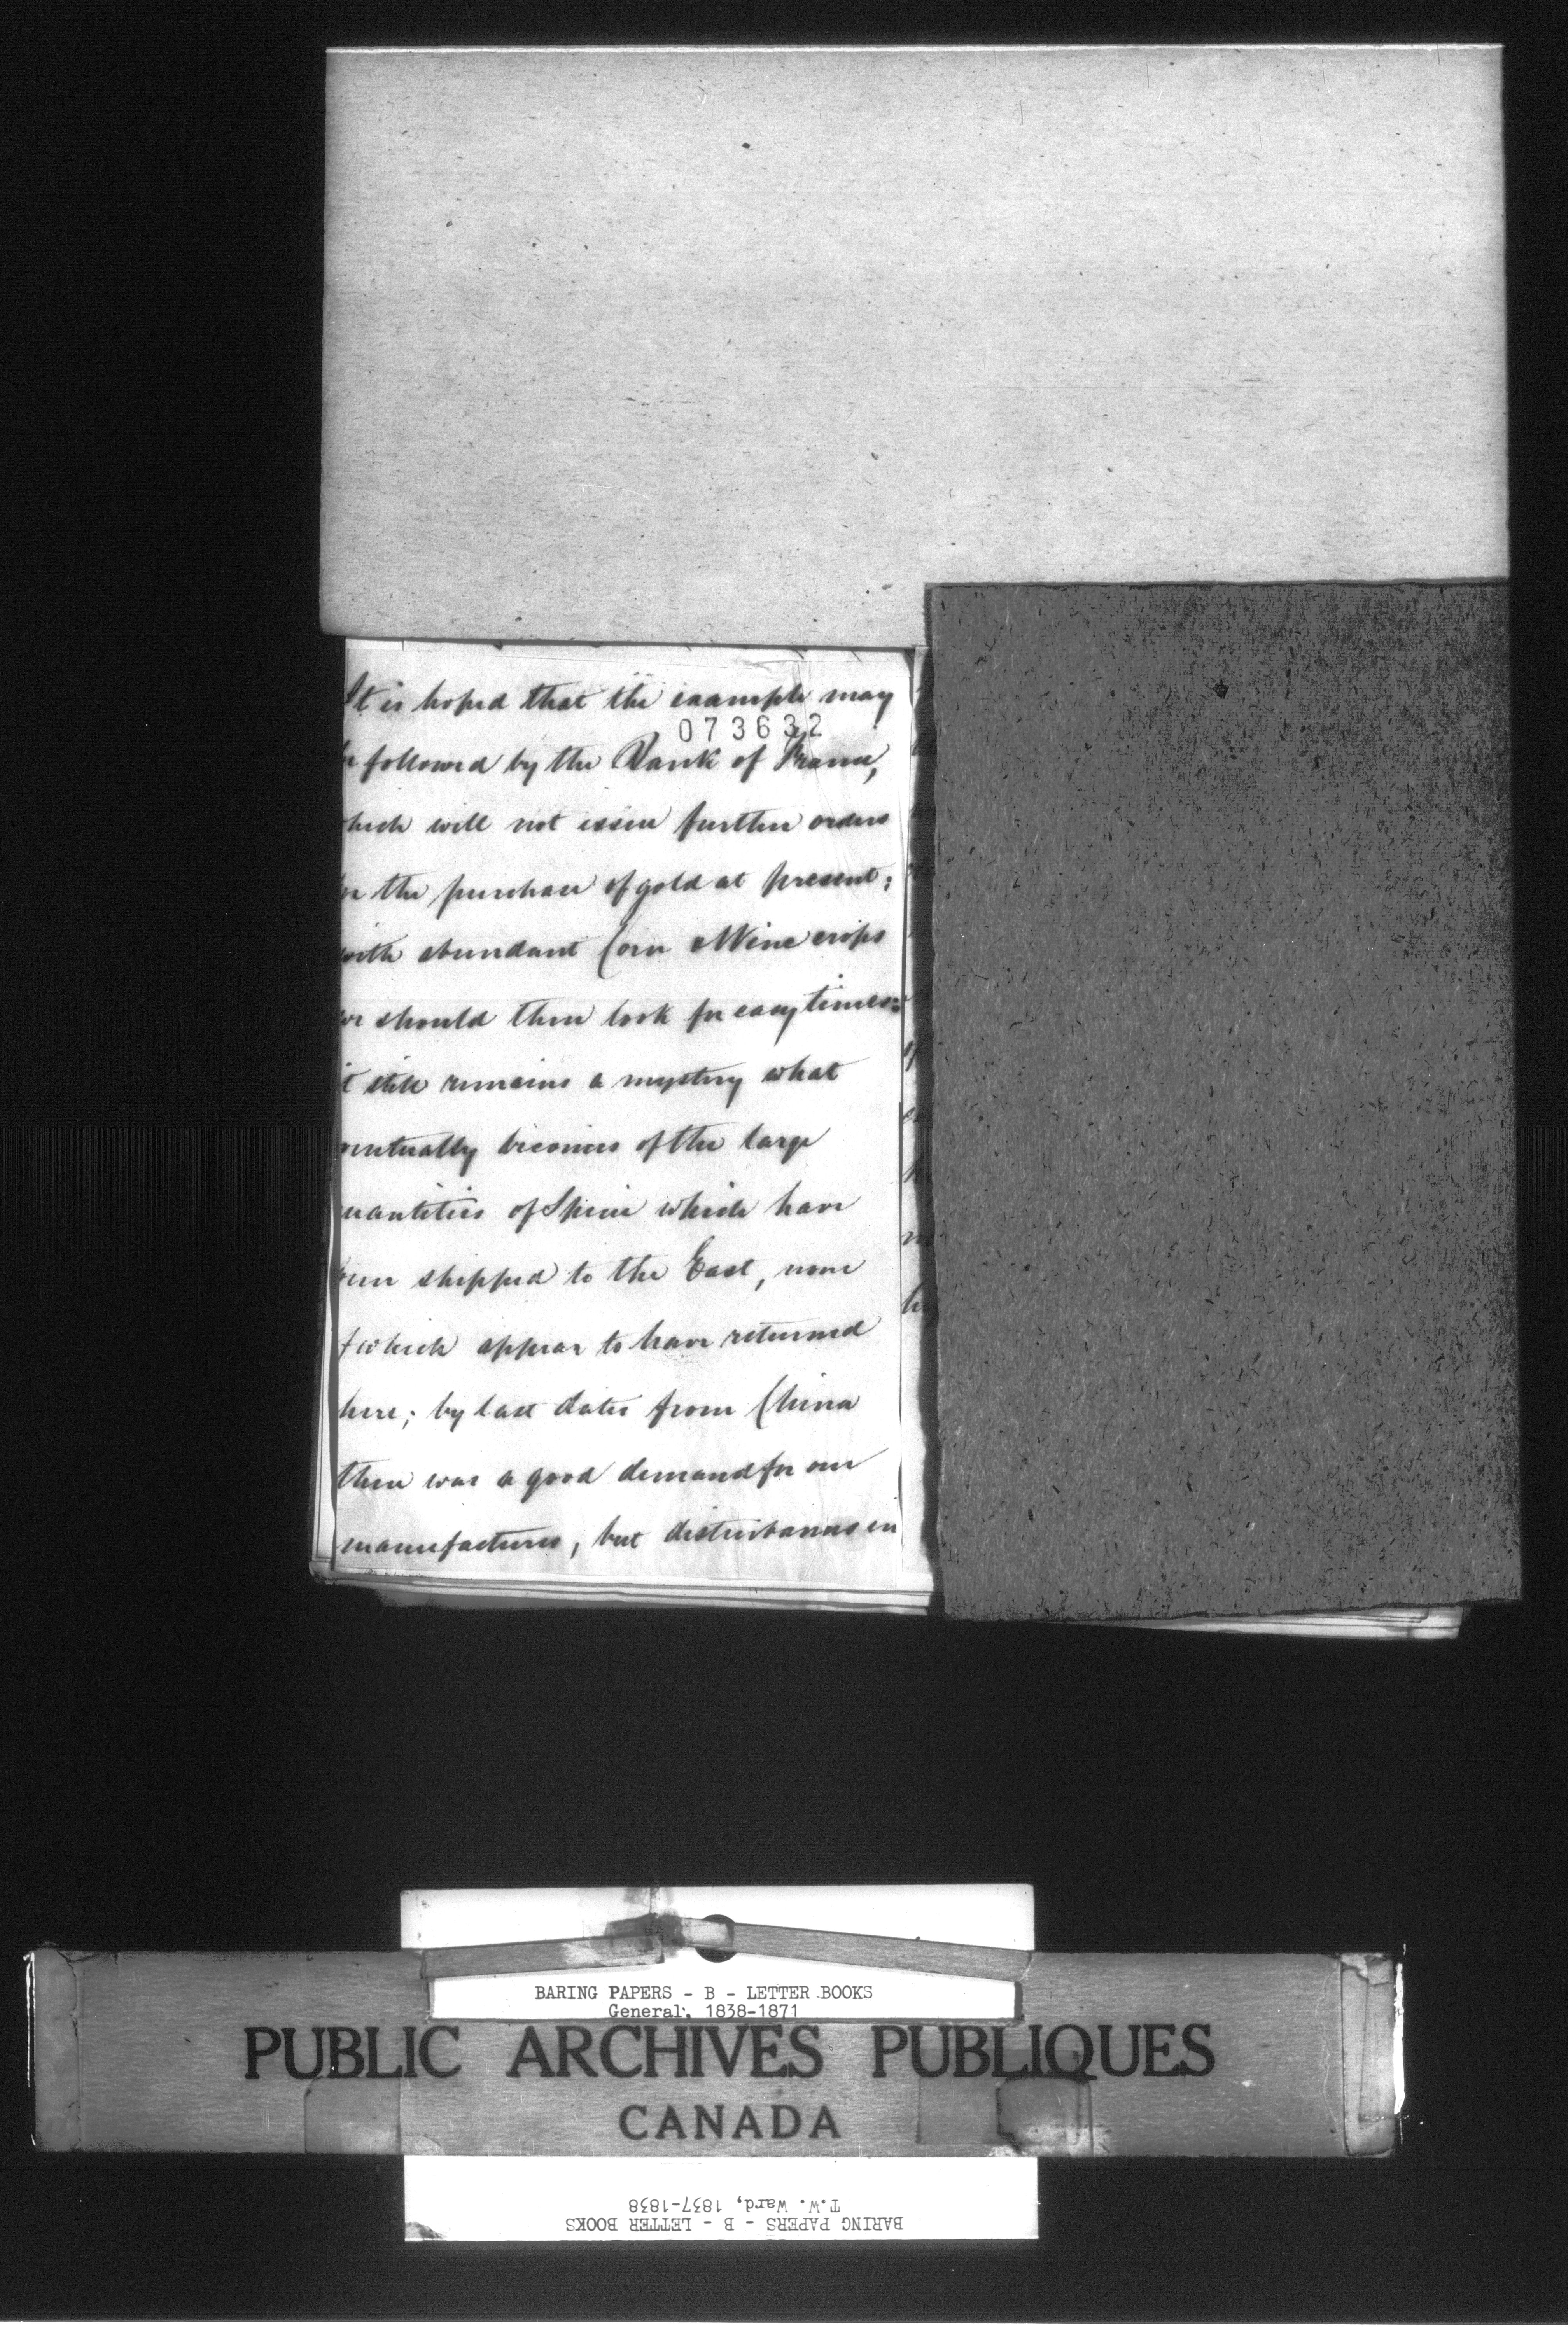 It is hoped that the example may
073632
be followed by the Bank of France,
which will not issue further orders
for the purchase of gold at present;
with abundant Corn & Wine crops
we should then look for easy times:
it still remains a mystery what
eventually becomes of the large
quantities of Specie which have
been shipped to the East, none
of which appear to have returned
here; by last dates from China
there was a good demand for our
manufactures, but disturbances in
BARING PAPERS - B - LETTER BOOKS
General, 1838-1871
PUBLIC ARCHIVES PUBLIQUES
CANADA
T.W. Ward, 1837-1838
BARING PAPERS - B - LETTER BOOKS